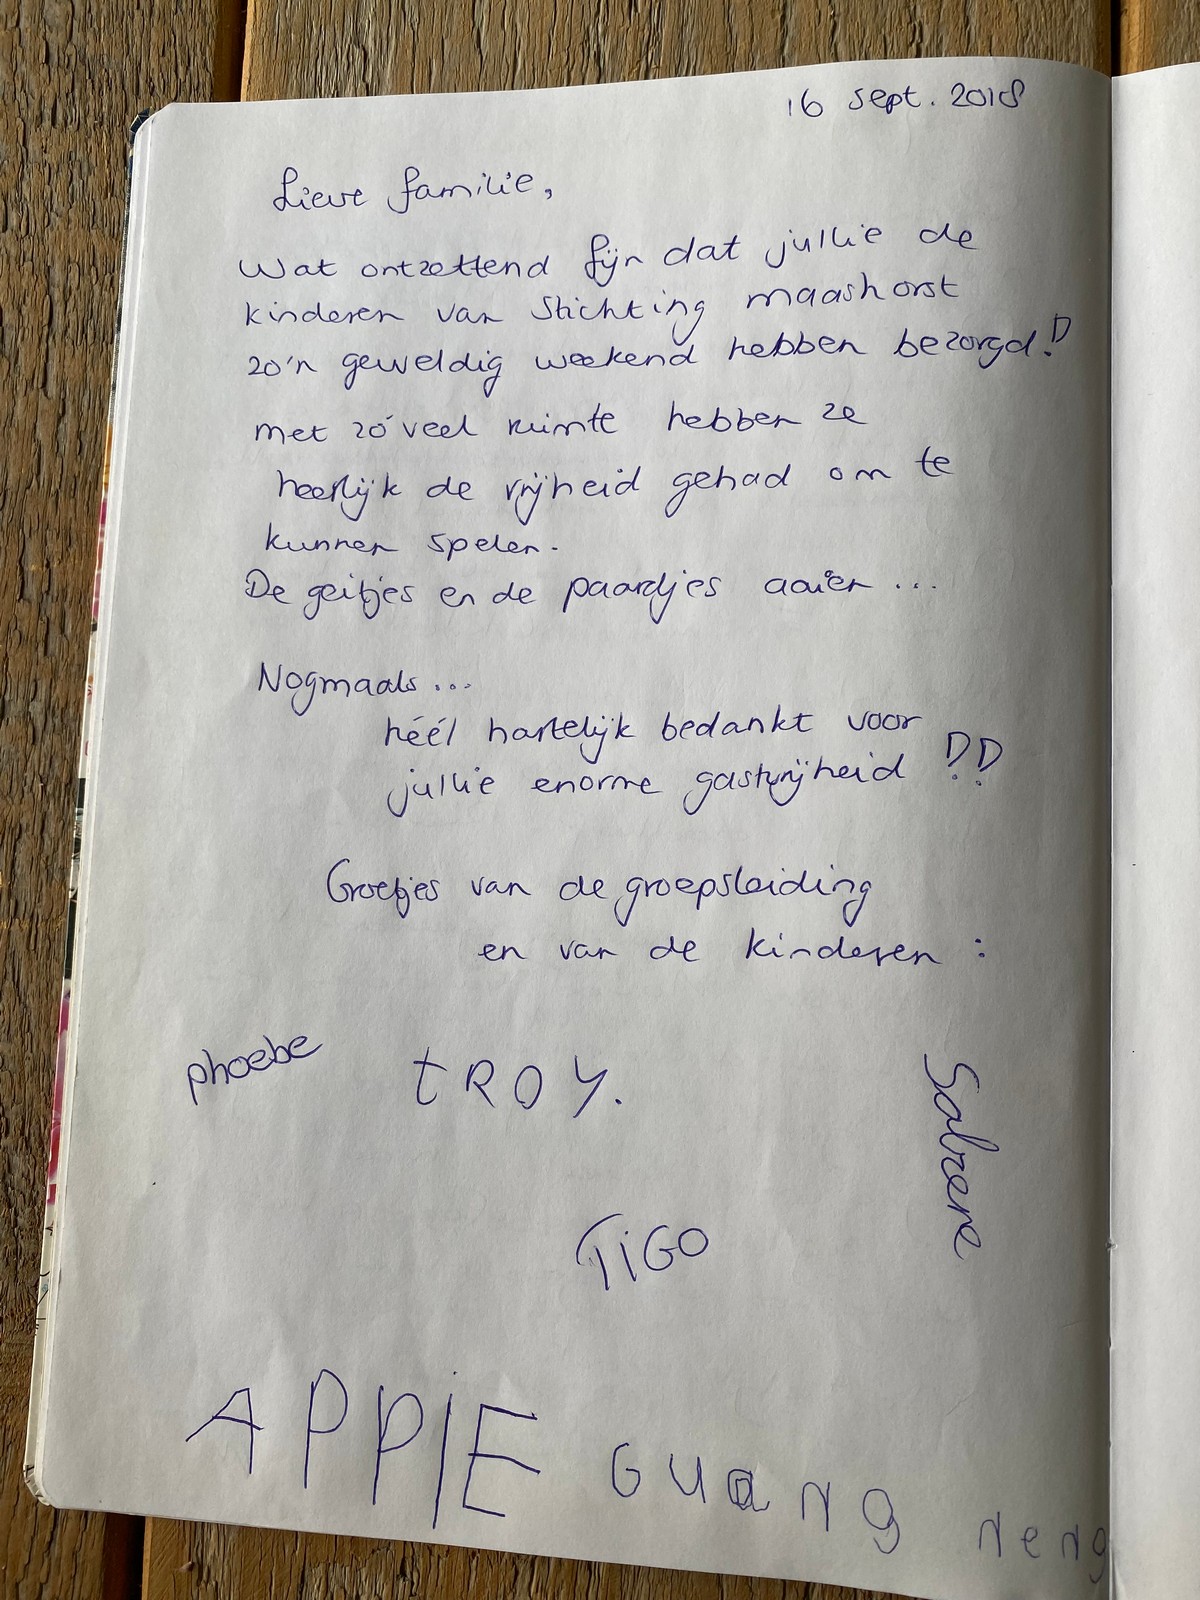 16 sept. 2018
Lieve familie,
Wat ontzettend fijn dat jullie de
kinderen van Stichting maashorst
zo'n geweldig weekend hebben bezorgd!
met zó veel ruimte hebben ze
heerlijk de vrijheid gehad om te
kunnen spelen.
De geitjes en de paardjes aaien ...
Nogmaals ...
héél hartelijk bedankt voor
jullie enorme gastvrijheid !!
Groetjes van de groepsleiding
en van de kinderen :
phoebe tROY.
TiGO
APPIE Guang neng